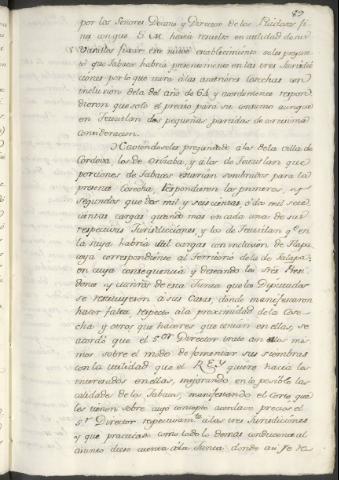 por los Señores Decano y Director de las
na con que S.M. havia resuelto en utilidad de sus
este nuevo establecimiento se les pregun-
to que Tabaco habria en las tres Jurisdic-
ciones por lo que mira a las anteriores cosechas con
inclusion de la del año de 64 y acordemente respon-
dieron que solo el preciso para su consumo aunque
en Teusitlan dos pequeñas partidas de cortisima
consideracion.
Haviendoseles preguntado a los de la villa de
Cordova, los de Orisaba, y a los de Teusitlan que
porciones de Tabacos estarian sembradas para la
presente Cosecha, respondieron los primeros, y
segundos que dos mil y seiscientas, ó dos mil sete-
cientas cargas quando mas en cada una de sus
respectivas Jurisdicciones, y los de Teusitlan q.e en
la suya habria mil cargas con inclusion de Tlapa
coya correspondiente al Territorio de la de Jalapa;
en cuya consequencia y deseando los tres
y de esta Junta que los Diputados
se restituyesen a sus Casas, donde manifestaron
hacer falta respecto a la proximidad de la Cose-
cha y otros que haceres que tenian en ellas, se
acordó que el S.or Director trate con ellos mis-
mos sobre el modo de fomentar sus siembras
con la utilidad que el REY quiere hacia los
interesados en ellas, mejorando en lo posible las
calidades de los Tabacos, manifestando el corte que
les tienen sobre cuyo concepto acordara precios el
S.r Director respectivam.te a las tres Jurisdicciones
y que practicado con todo lo demas conducente al
asunto dará cuenta á la Junta donde